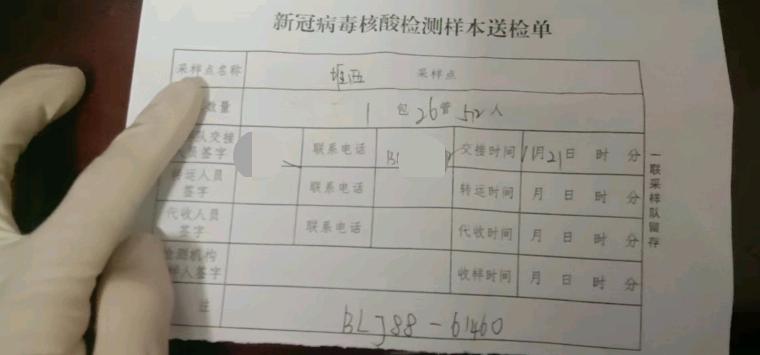 新冠病毒核酸检测样本送检单
采样点名称 堰西 采样点
数量 1 包 26 管 512 人
队交接 联系电话 交接时间 11月21日 时 分
员签字
转运人员 联系电话 转运时间 月 日 时 分
签字
代收人员 联系电话 代收时间 月 日 时 分
签字
检测机构 收样时间 月 日 时 分
样人签字
注 BLJ88-61460
一联采样队留存